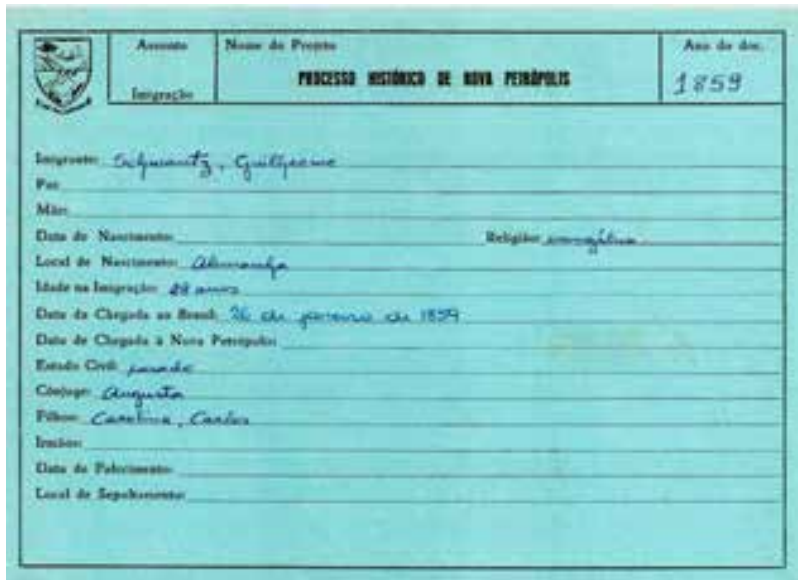 Assunto
Imigração
Nome do Projeto
PROCESSO HISTÓRICO DE NOVA PETRÓPOLIS
Ano do doc.
1859
Imigrante: Schwantz, Guilherme
Pai:
Mãe:
Data de Nascimento: Religião: evangélica
Local de Nascimento: Alemanha
Idade na Imigração: 28 anos
Data da Chegada ao Brasil: 26 de janeiro de 1859
Data de Chegada à Nova Petrópolis:
Estado Civil: casado
Cônjuge: Augusta
Filhos: Carolina, Carlos
Irmãos:
Data de Falecimento:
Local de Sepultamento: